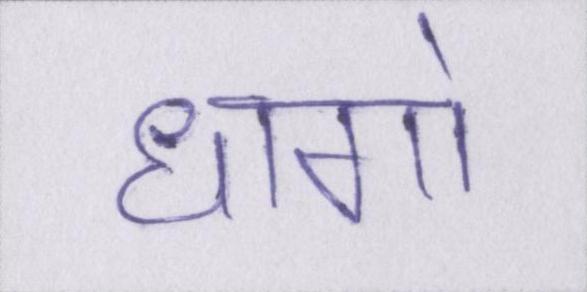 धागों